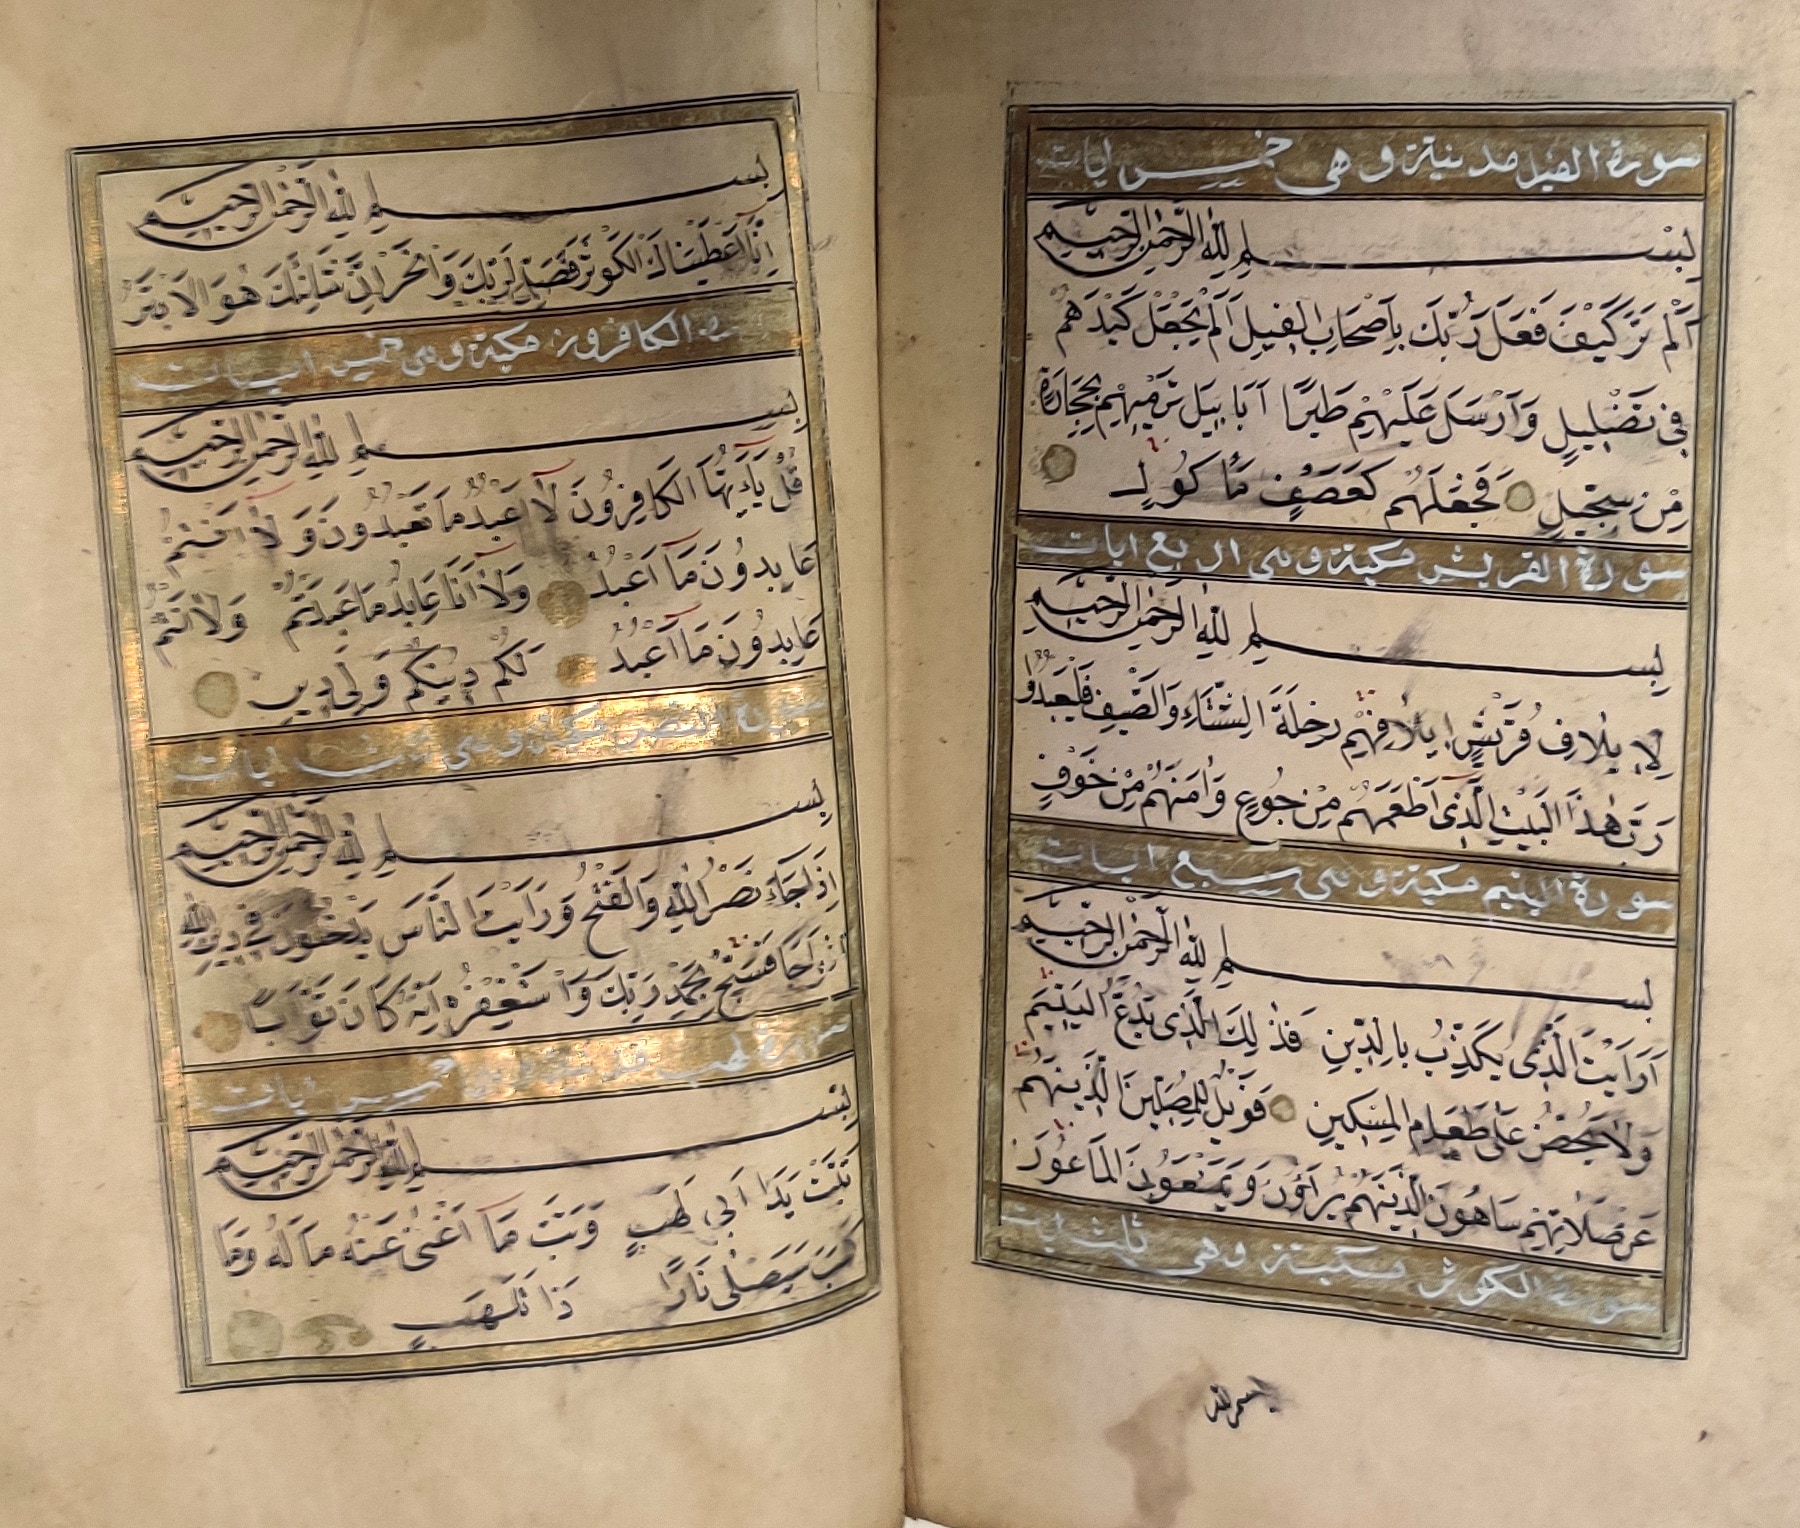 سورة الفيل مدنية وهي خمس ايات
بسم الله الرحمن الرحيم
اَلَمْ تَرَ كَيْفَ فَعَلَ رَبُّكَ بِاَصْحَابِ الْفِيلِ اَلَمْ يَجْعَلْ كَيْدَهُمْ
فِي تَضْلِيلٍ وَاَرْسَلَ عَلَيْهِمْ طَيْرًا اَبَابِيلَ تَرْمِيهِمْ بِحِجَارَةٍ
مِنْ سِجِّيلٍ فَجَعَلَهُمْ كَعَصْفٍ مَأْكُولٍ
سورة القريش مكية وهى اربع ايات
بسم الله الرحمن الرحيم
لِاِيلَافِ قُرَيْشٍ اِيلَافِهِمْ رِحْلَةَ الشِّتَاءِ وَالصَّيْفِ فَلْيَعْبُدُوا
رَبَّ هٰذَا الْبَيْتِ الَّذِى اَطْعَمَهُمْ مِنْ جُوعٍ وَاٰمَنَهُمْ مِنْ خَوْفٍ
سورة اليتيم مكية وهى سبع ايات
بسم الله الرحمن الرحيم
اَرَاَيْتَ الَّذِى يُكَذِّبُ بِالدِّينِ فَذٰلِكَ الَّذِى يَدُعُّ الْيَتِيمَ
وَلَا يَحُضُّ عَلٰى طَعَامِ الْمِسْكِينِ فَوَيْلٌ لِلْمُصَلِّينَ الَّذِينَ هُمْ
عَنْ صَلَاتِهِمْ سَاهُونَ الَّذِينَ هُمْ يُرَاؤُنَ وَيَمْنَعُونَ الْمَاعُونَ
سورة الكوثر مكية وهى ثلث ايات
بسم الله
بسم الله الرحمن الرحيم
اِنَّا اَعْطَيْنَاكَ الْكَوْثَرَ فَصَلِّ لِرَبِّكَ وَانْحَرْ اِنَّ شَانِئَكَ هُوَ الْاَبْتَرُ
الكافرون مكية وهى خمس ايات
بسم الله الرحمن الرحيم
قُلْ يَاءَيُّهَا الْكَافِرُونَ لَا اَعْبُدُ مَا تَعْبُدُونَ وَلَا اَنْتُمْ
عَابِدُونَ مَا اَعْبُدُ وَلَا اَنَا عَابِدٌ مَا عَبَدْتُمْ وَلَا اَنْتُمْ
عَابِدُونَ مَا اَعْبُدُ لَكُمْ دِينُكُمْ وَلِيَ دِينِ
النصر مكية وهى ثلث ايات
بسم الله الرحمن الرحيم
اِذَا جَاءَ نَصْرُ اللّٰهِ وَالْفَتْحُ وَرَاَيْتَ النَّاسَ يَدْخُلُونَ فِي دِينِ اللّٰهِ
اَفْوَاجًا فَسَبِّحْ بِحَمْدِ رَبِّكَ وَاسْتَغْفِرْهُ اِنَّهُ كَانَ تَوَّابًا
سورة لهب خمس ايات
بسم الله الرحمن الرحيم
تَبَّتْ يَدَا اَبِي لَهَبٍ وَتَبَّ مَا اَغْنٰى عَنْهُ مَالُهُ وَمَا
كَسَبَ سَيَصْلٰى نَارًا ذَاتَ لَهَبٍ